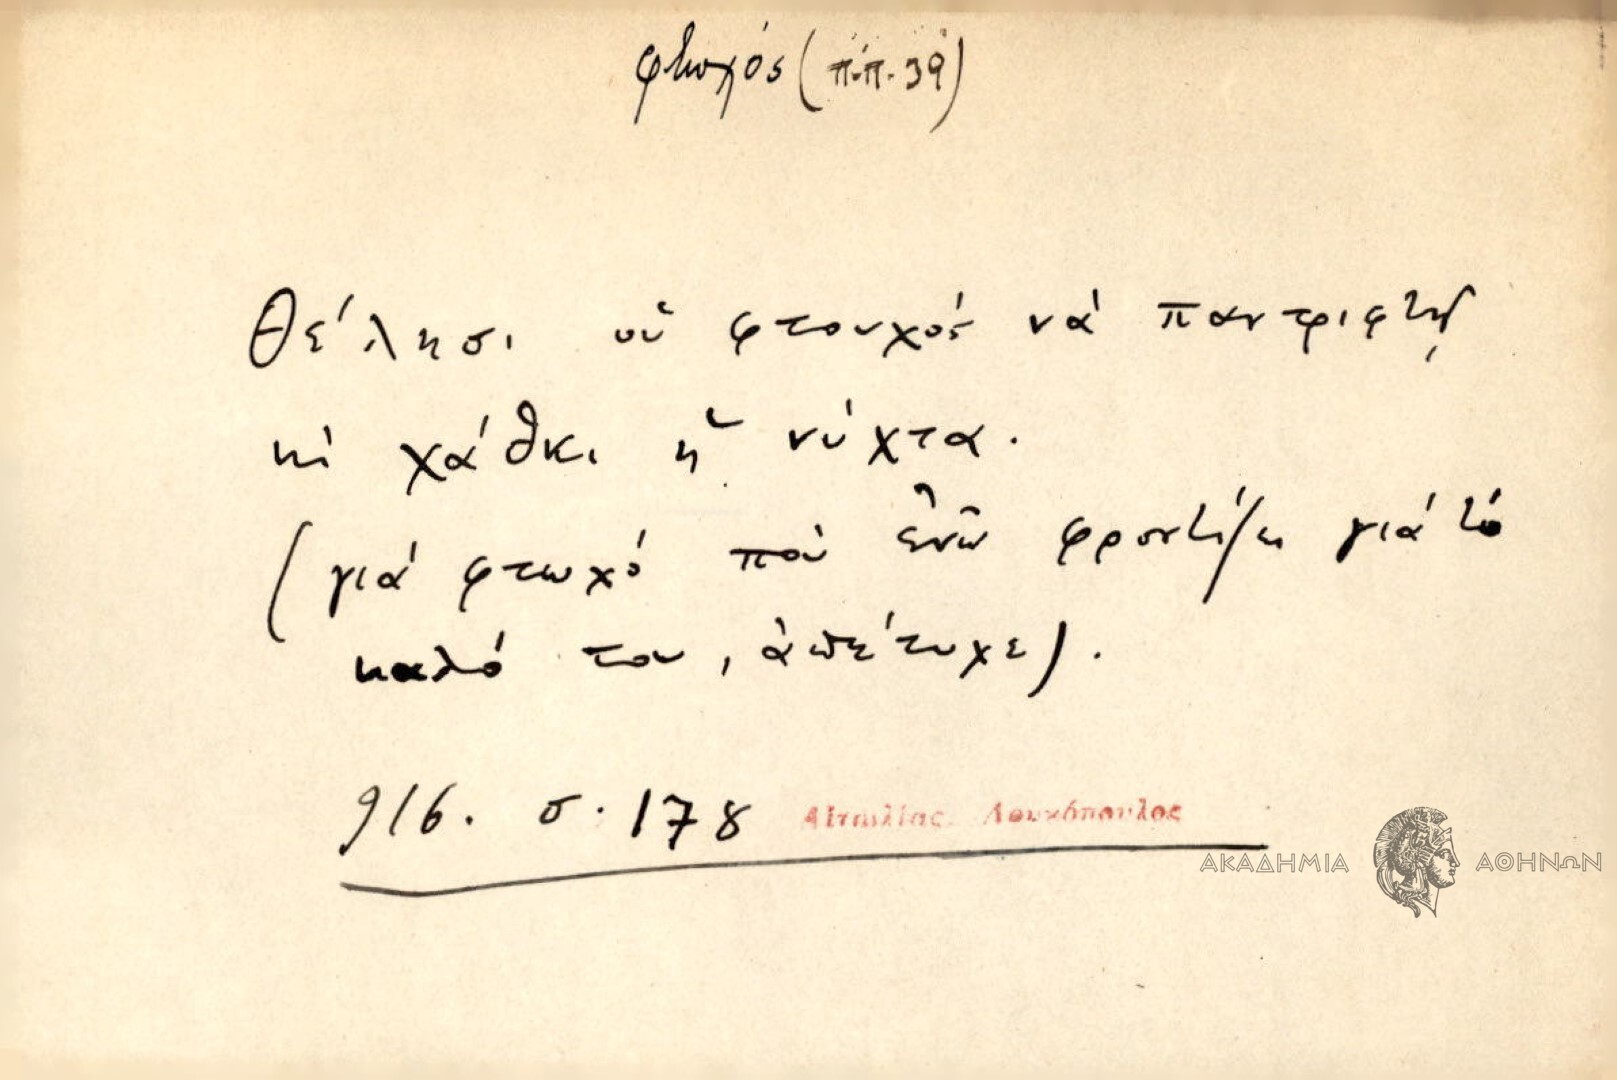 φτωχός (π.π. 39)
Θέλησι οὑ φτουχός νά παντριφτῇ
κὶ χάθκι ἡ νύχτα.
(γιά φτωχό ποὺ ἐνῶ φροντίζει γιά τό
καλό του, ἀπέτυχε).
916. σ. 178 Αἰτωλίας. Λουκόπουλος
ΑΚΑΔΗΜΙΑ ΑΘΗΝΩΝ